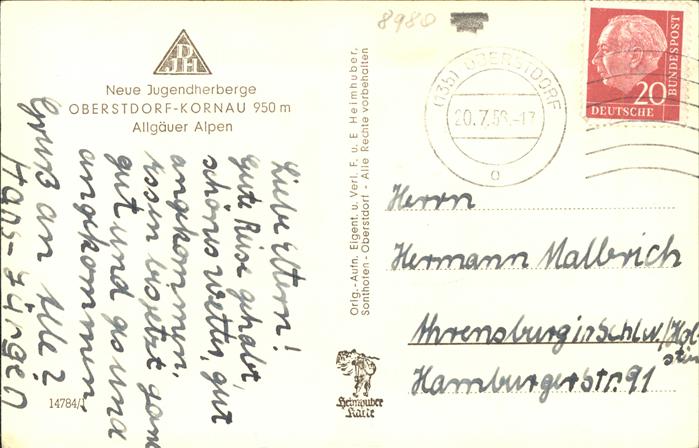 8980
DJH
Neue Jugendherberge
OBERSTDORF-KORNAU 950 m
Allgäuer Alpen
Liebe Eltern!
Gute Reise gehabt,
schönes Wetter, gut
angekommen,
Essen bis jetzt ganz
gut und gesund
angekommen.
Gruß an Alle?
Hans-Jürgen
14784/1
Orig.-Aufn. Eigent. u. Verl. F. u. E. Heimhuber,
Sonthofen-Oberstdorf - Alle Rechte vorbehalten
Heimhuber
Karte
(13b) OBERSTDORF
20.7.56.-17
a
20
DEUTSCHE
BUNDESPOST
Herrn
Hermann Malbrich
Ahrensburg in Schlw/Hol-
stein
Hamburgerstr. 91